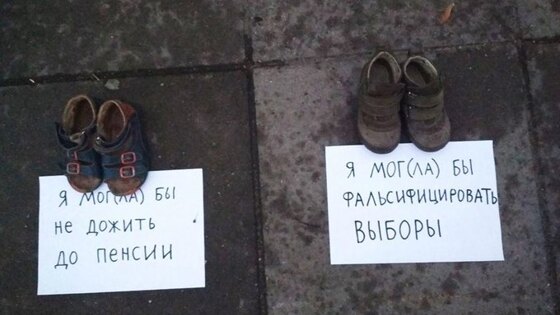 Я МОГ(ЛА) БЫ
НЕ ДОЖИТЬ
ДО ПЕНСИИ
Я МОГ(ЛА) БЫ
ФАЛЬСИФИЦИРОВАТЬ
ВЫБОРЫ